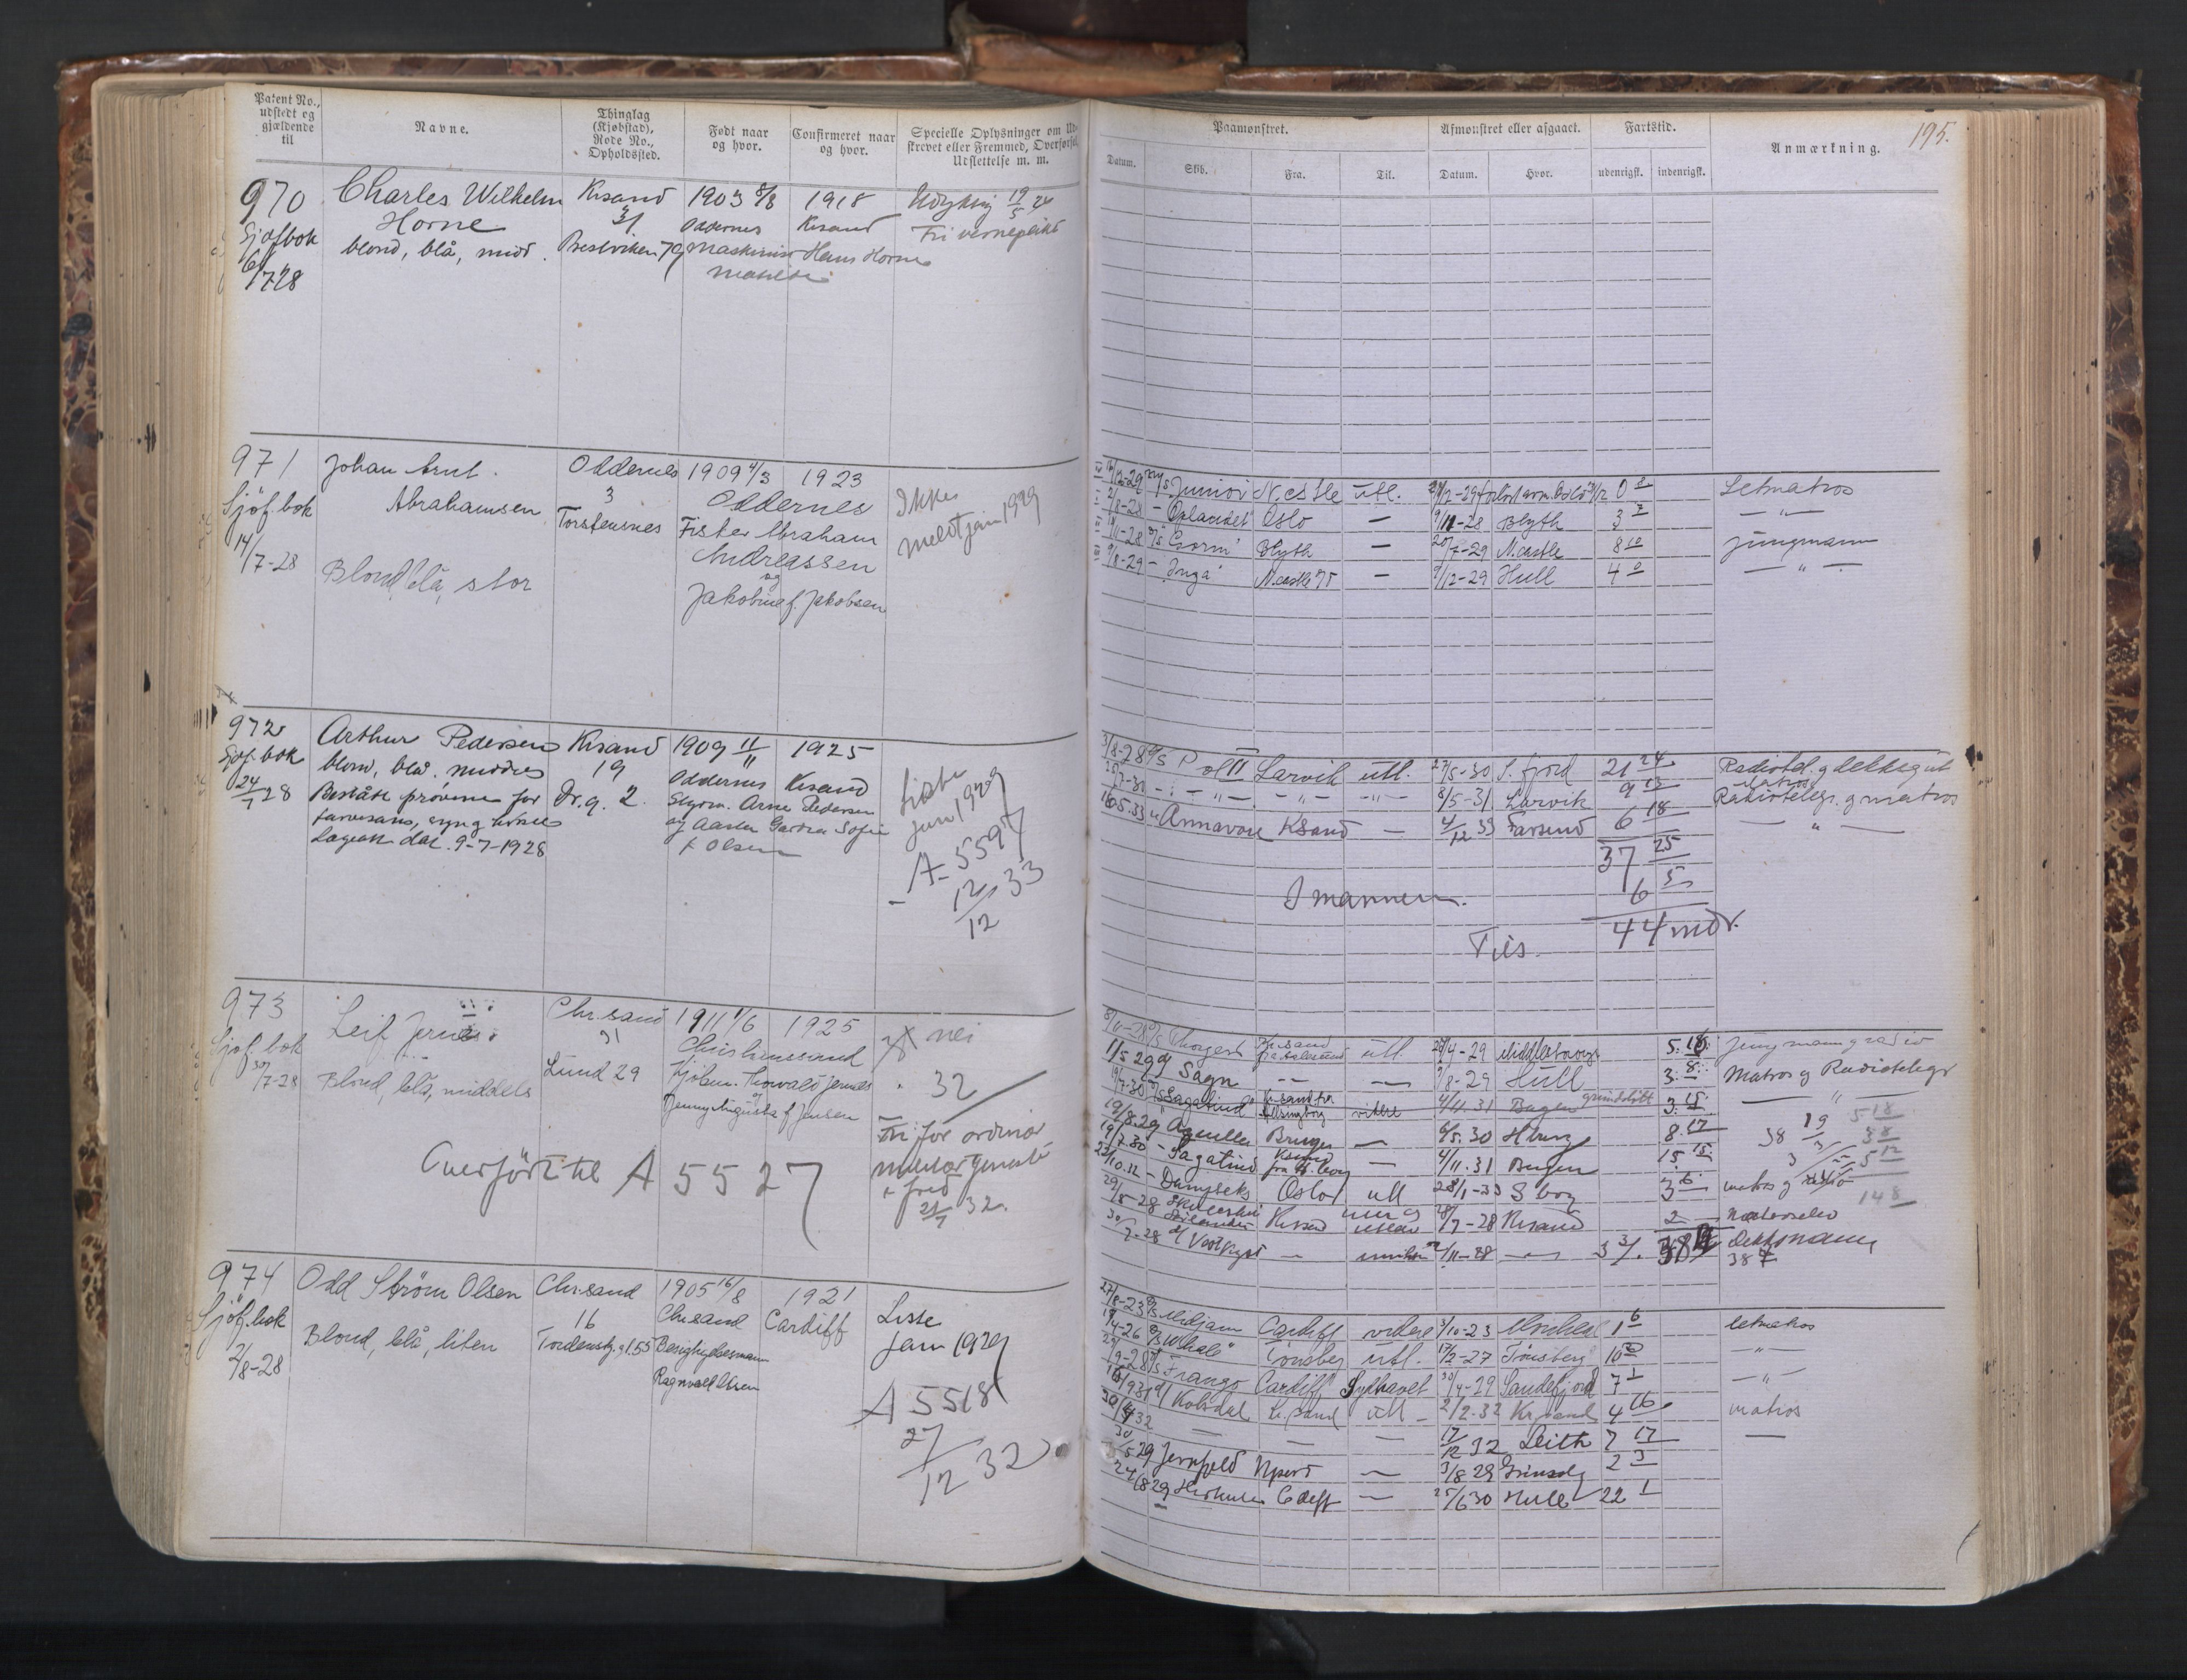 Patent No., udstedt og gjældende til
Navne.
Thinglag (Kjøbstad), Rode No., Opholdssted.
Født naar og hvor.
Confirmeret naar og hvor.
Specielle Oplysninger om Udskrevet eller Fremmed, Overførsel, Udslettelse m. m.
970
Sjøfbok
6/7 28
Charles Wilhelm
Horne
blond, blå, midd.
Krsand
31
1903 8/8
Oddernes
Maskinist Hans Horne
1918
Krsand
19/5 24
Fri vernepligt
971
Sjöf. bok
14/7-28
Johan Arnt
Abrahamsen
Blond, blå, stor
Oddernes
3
Torstensnes
1909 4/3
1923
Oddernes
Fisker Abraham
Andreassen
og
Jakobine f. Jakobsen
Ikke
meldt jan 1929
972
Sjöf. bok
24/7 28
Arthur Pedersen
blond, blå, middels
Bestått prövene for
farvesans, syn og hörsel
Lægeatt. dat. 9-7-1928
Krsand
19
Dr. g. 2.
1909 11/11
1925
Oddernes
Krsand
Styrm. Arne Pedersen
f. Olsen
Liste
jan 1929
A-5597
12/12 33
973
Sjöf. bok
30/7-28
Leif Jernes
Blond, blå, middels
Chr.sand
31
Lund 29
1911 1/6
1925
Christiansand
Thorvald Jernes
og
Jenny Augusta f. Jensen
nei
32
for ordinær
militær tjeneste
i fred
21/7 32.
Overfört til A 5527
974
Sjöf. bok
2/8-28
Odd Ström Olsen
Blond, blå, liten
Chr.sand
16
Tordenskj.g. 55
1905 16/8
Chr.sand
Besigtigelsesmann
Ragnvald Olsen
1921
Cardiff
Liste
Jan 1929
A 5518
27/12 32
195.
Paamønstret.
Afmønstret eller afgaaet.
Fartstid.
Anmærkning.
Datum.
Skib.
Fra.
Til.
Datum.
Hvor.
udenrigsk.
indenrigsk.
Junior N.castle utl. Letmatros
/8-28 - Oplandet Oslo — 9/11-28 Blyth 3 7 — " —
Blyth — 20/7-29 N.castle 8 10 jungmann
9/8-29 - Inga N.castle — /12-29 Hull 4 0 — " —
3/8-28 Pol II Larvik utl. 27/5-30 S.fjord 21 24 Radiotel. og dekksgut
— " — — " — — " — 8/5-31 Larvik 9 13 Radiotelegr. og matros
16.5.33 Annavore KSand — 4/12 33 Farsund 6 18 — " —
37 25
I marinen. 6 5
Tils. 44 mdr.
8/11-28 Thorgerd Kr.sand utl. 26/4-29 Middlesbrough 5. 18. jungmann og radio
1/5 29 Sagn — — /8-29 Hull 3. 8. Matros og Radiotelegr
19/7-30 Sagatind Kr.sand fra Helsingborg videre 4/11.31 Bergen 3. 15. — " —
19/8.29 Aquilla Brugge — 6/5.30 8. 17 38 19
19/7.30 - Sagatind Ksand — 4/11.31 Bergen 15 15
Oslo utl 28/1-33 S borg 3 6 matros og radio
148
29/5-28 Krsand 28/7-28 Krsand 2
30/7-28 Vestkyst — 2/11-28 — 3 3/. Dekksmann
38
27/8-23 Mirjam Cardiff videre 3/10-23 Montreal 1 6 letmatros
19/4-26 "Whale" Tönsberg utl. 17/2-27 Tönsberg 10 — " —
/9-28 Frango Cardiff Sydhavet 30/4-29 Sandefjord 7 1 — " —
Kolsdal Kr.sand utl - 2/2-32 Kr.sand 4 16 matros
30/4 32 — — — 17/12 32 Leith 7 17 —
/5 29 Jernfeld Nport — 3/8 29 Grimsby 2 3
24/8 29 Herkules Cdiff — 25/6 30 Hull 22 1